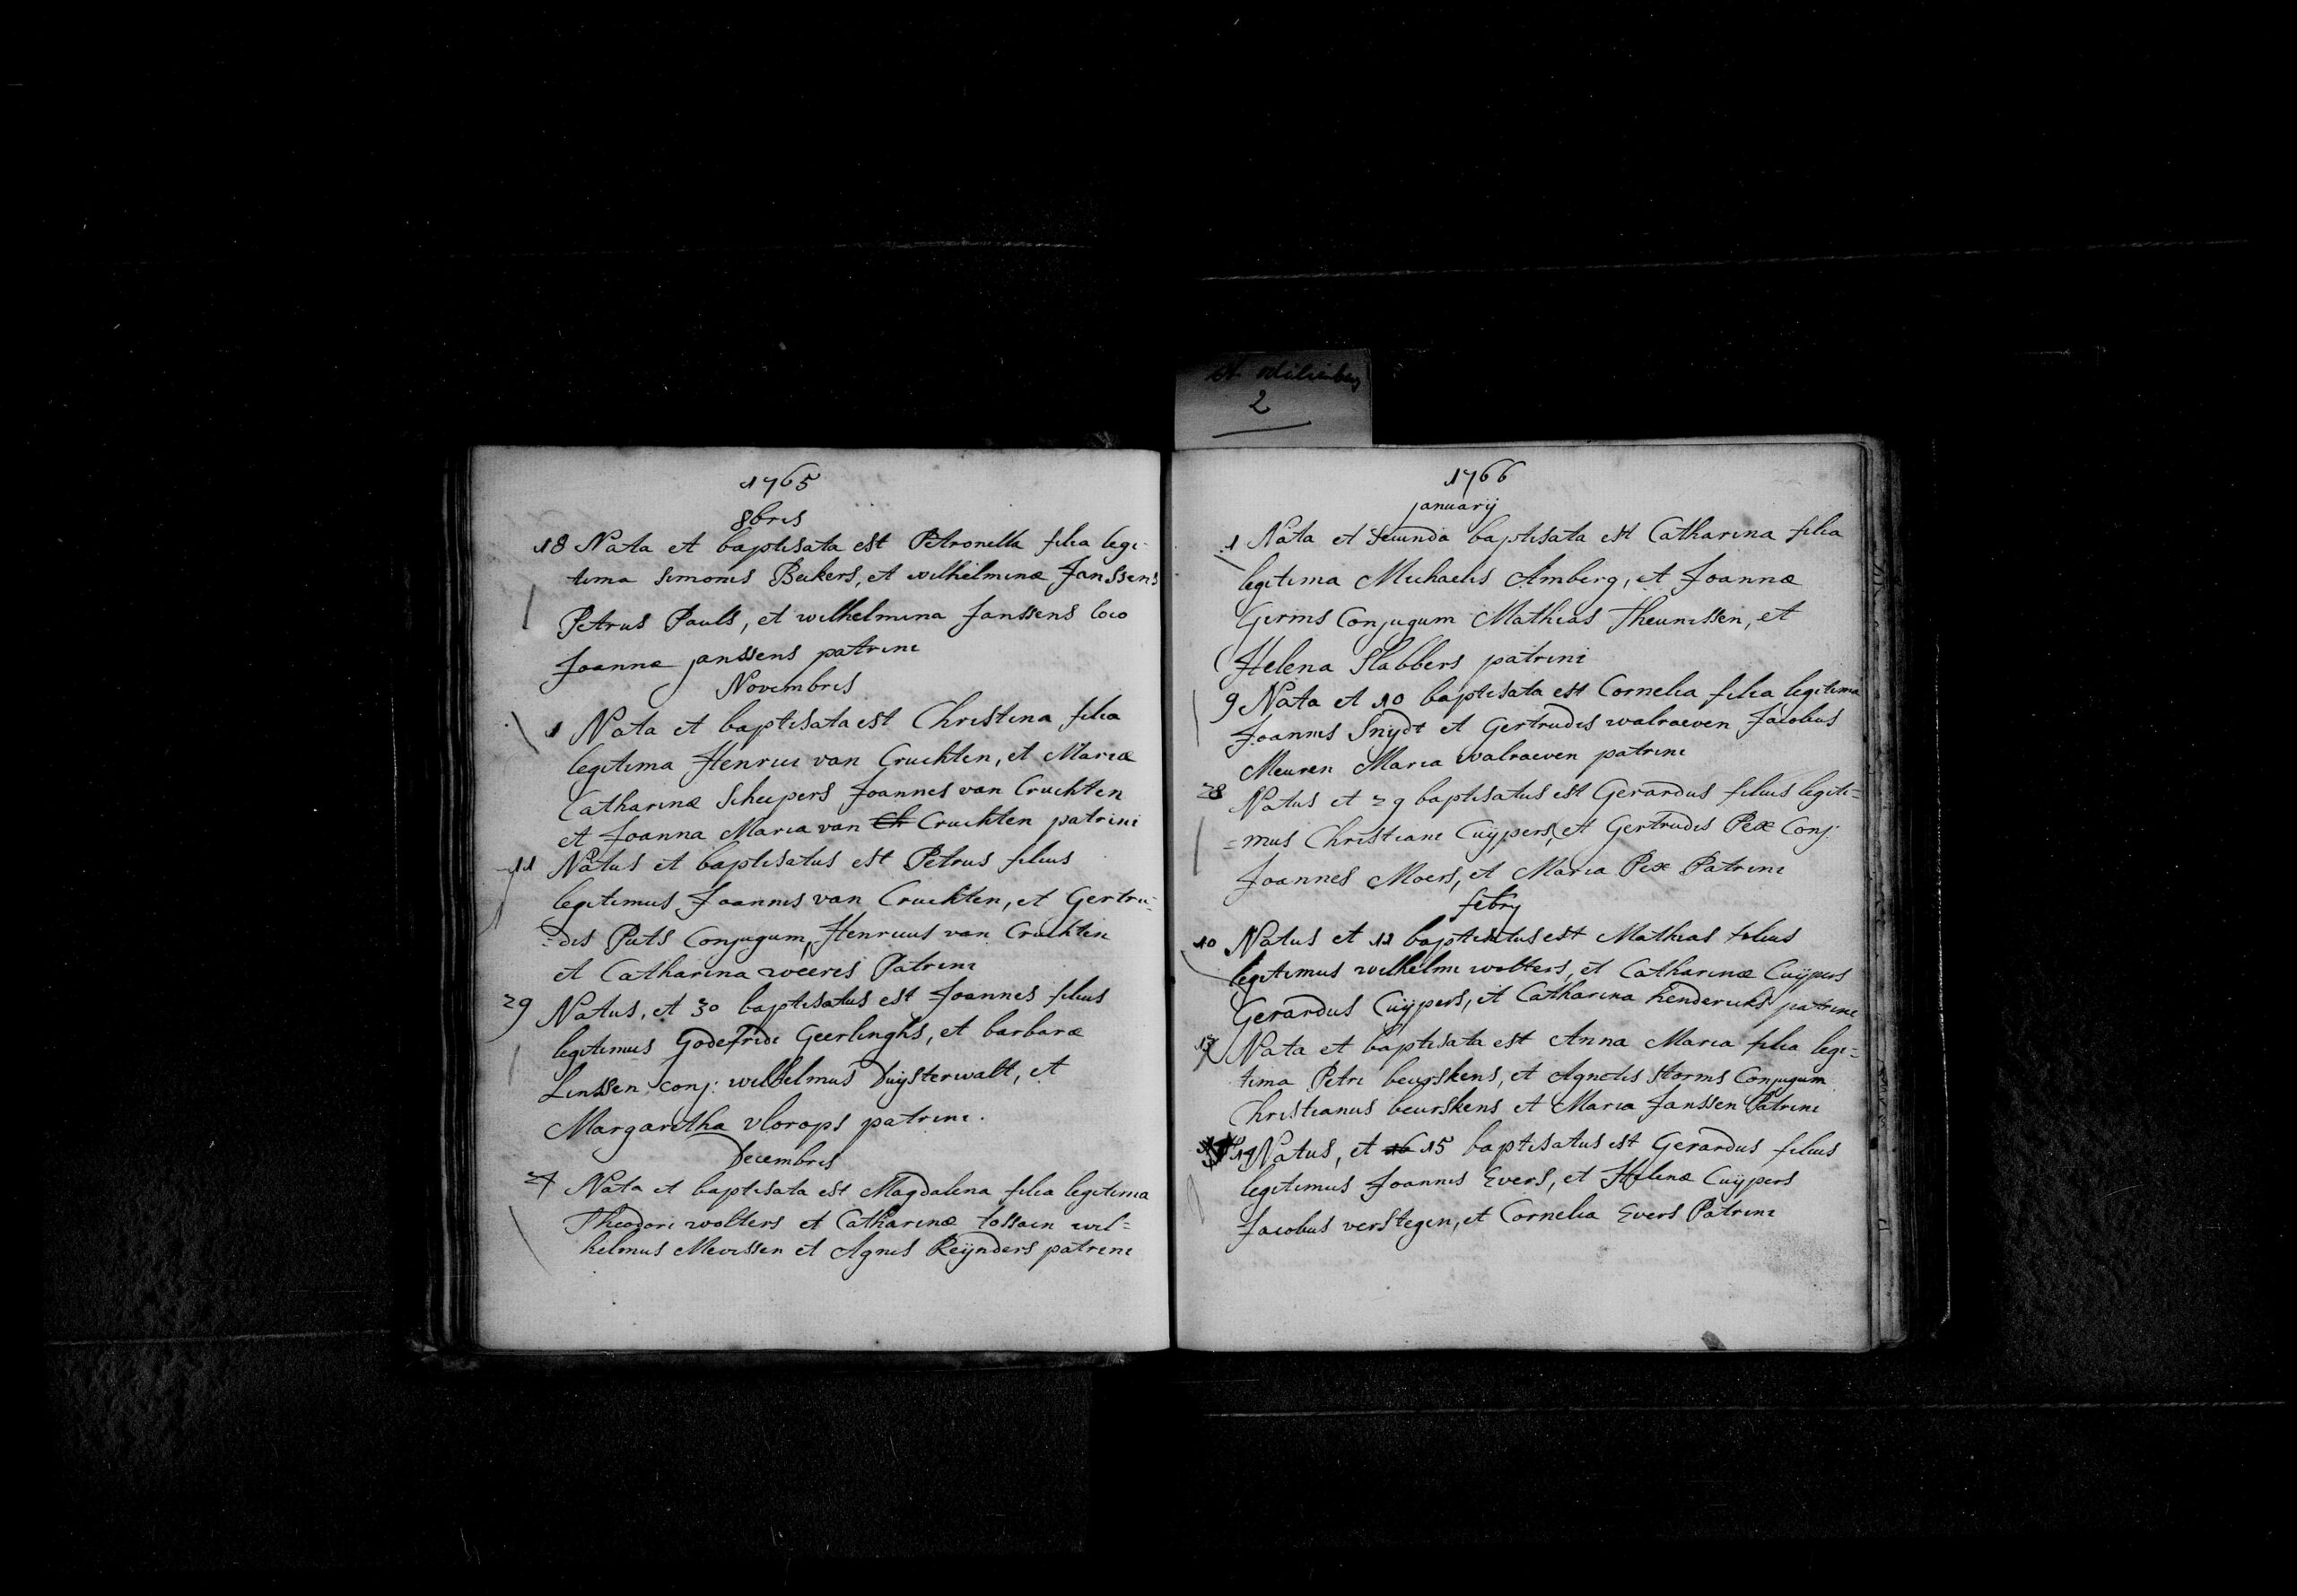 st odilienberg
2
1765
8bris
18 Nata et baptisata est Petronella filia legi-
tima Simonis Bekers, et wilhelminæ Janssens
Petrus Pauls, et wilhelmina Janssens loco
Joannæ janssens patrini
Novembris
1 Nata et baptisata est Christina filia
legitima Henrici van Cruchten, et Mariæ
Catharinæ Scheepers Joannes van Cruchten
et Joanna Maria van Ch Cruchten patrini
11 Natus et baptisatus est Petrus filius
legitimus Joannis van Cruchten, et Gertru=
=dis Puts Conjugum, Henricus van Cruchten
et Catharina weeris Patrini
29 Natus, et 30 baptisatus est Joannes filius
legitimus Godefridi Geerlinghs, et barbaræ
Linssen conj: wilhelmus Duijsterwalt, et
Margaretha vlorops patrini.
Decembris
Nata et baptisata est Magdalena filia legitima
Theodori wolters et Catharinæ tossain wil=
helmus Mevissen et Agnes Reijnders patrini
1766
januarij
1 Nata et secunda baptisata est Catharina filia
legitima Michaelis Amberg, et Joannæ
Girms Conjugum Mathias Theunissen, et
Helena Slabbers patrini
9 Nata et 10 baptisata est Cornelia filia legitima
Joannis Snijdt et Gertrudis walraeven Jacobus
Meuren Maria walraeven patrini
28 Natus et 29 baptisatus est Gerardus filius legiti=
=mus Christiani Cuijpers, et Gertrudis Pex Conj:
Joannes Moers, et Maria Pex Patrini
febry
10 Natus et 11 baptisatus est Mathias filius
legitimus wilhelmi wolters, et Catharinæ Cuijpers
Gerardus Cuijpers, et Catharina hendericks patrini
Nata et baptisata est Anna Maria filia legi=
tima Petri beurskens, et Agnetis Storms Conjugum
Christianus beurskens et Maria Janssen Patrini
14 Natus, et 16 15 baptisatus est Gerardus filius
legitimus Joannis Evers, et Helenæ Cuijpers
Jacobus verstegen, et Cornelia Evers Patrini